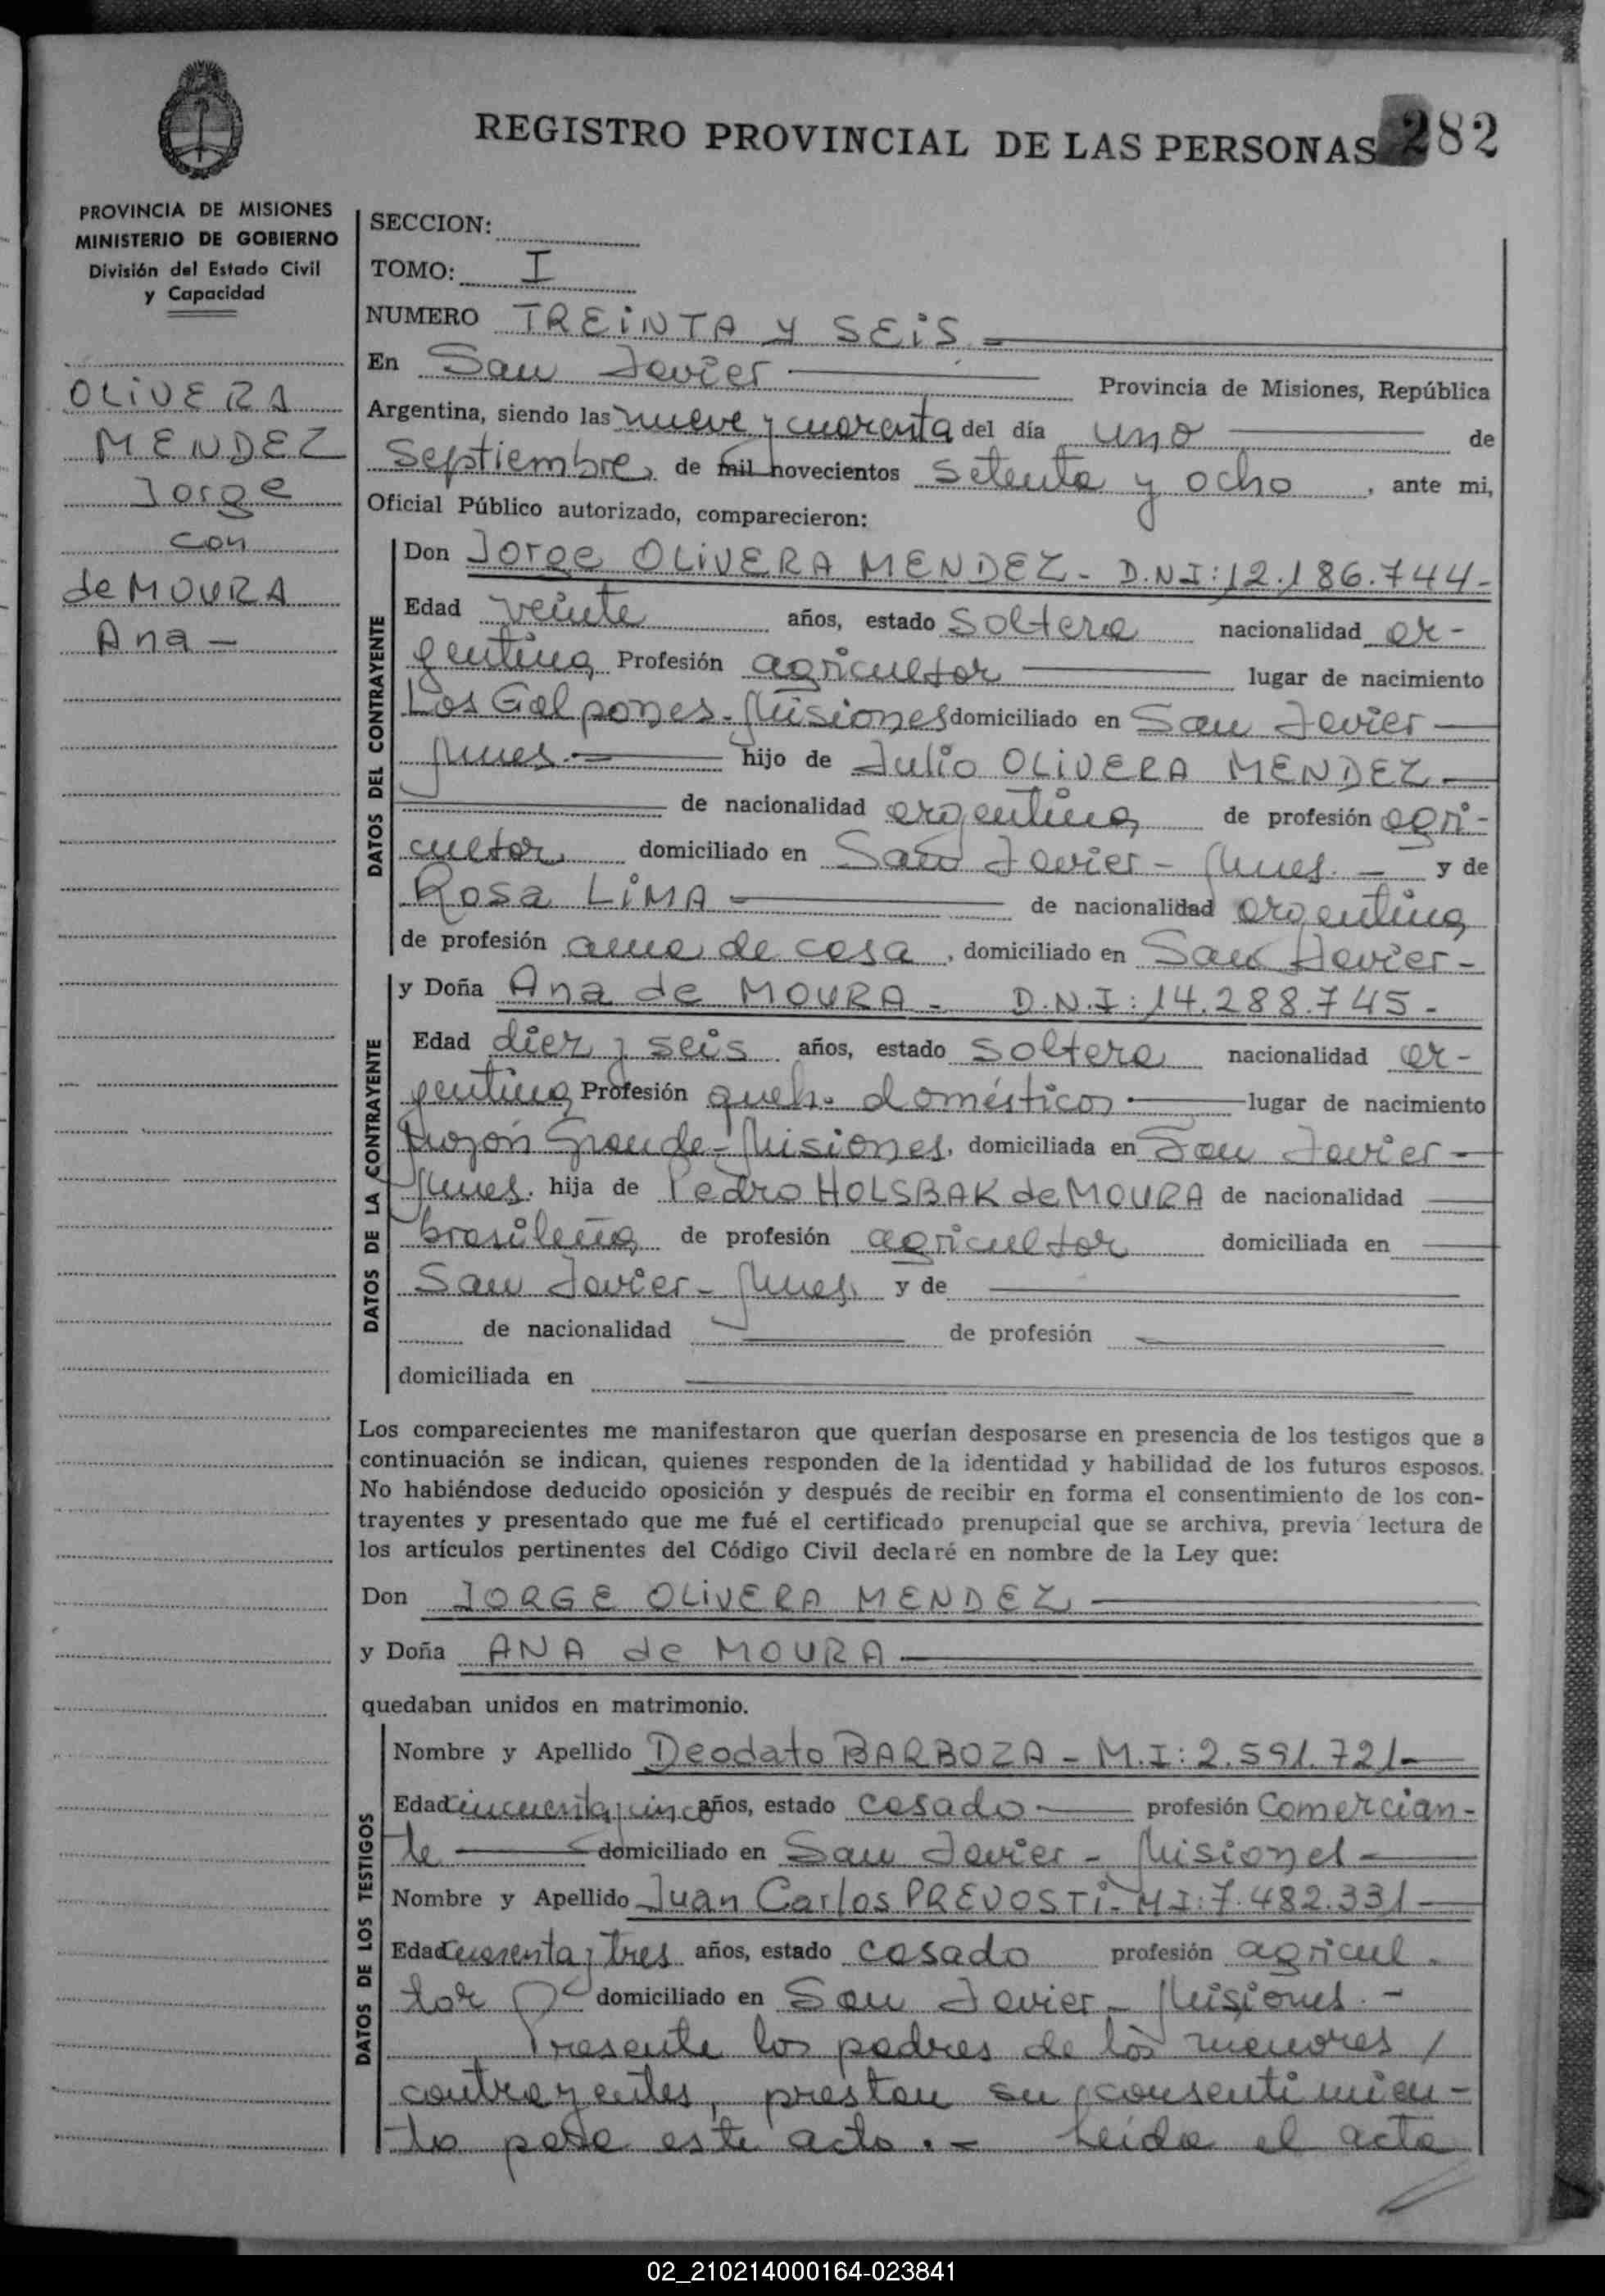 REGISTRO PROVINCIAL DE LAS PERSONAS 282
PROVINCIA DE MISIONES
MINISTERIO DE GOBIERNO
División del Estado Civil
y Capacidad
OLIVERA
MENDEZ
Jorge
con
de MOURA
Ana -
SECCION:
TOMO: I
NUMERO TREINTA Y SEIS -
En San Javier Provincia de Misiones, República
Argentina, siendo las nueve y cuarenta del día uno de
Septiembre de mil novecientos setenta y ocho, ante mi,
Oficial Público autorizado, comparecieron:
DATOS DEL CONTRAYENTE
Don Jorge OLIVERA MENDEZ - D.N.I: 12.186.744-
Edad veinte años, estado soltero nacionalidad ar-
gentina Profesión agricultor lugar de nacimiento
Los Galpones - Misiones domiciliado en San Javier
Mnes. - hijo de Julio OLIVERA MENDEZ -
de nacionalidad argentina de profesión agri-
cultor domiciliado en San Javier - Mnes. - y de
Rosa LIMA de nacionalidad argentina
de profesión ama de casa, domiciliado en San Javier -
DATOS DE LA CONTRAYENTE
y Doña Ana de MOURA - D.N.I: 14.288.745-
Edad diez y seis años, estado soltera nacionalidad ar-
gentina Profesión queh. domésticos lugar de nacimiento
Grande - Misiones, domiciliada en San Javier -
Mnes. hija de Pedro HOLSBAK de MOURA de nacionalidad
brasileña de profesión agricultor domiciliada en
San Javier - Mnes. y de
de nacionalidad de profesión
domiciliada en
Los comparecientes me manifestaron que querían desposarse en presencia de los testigos que a
continuación se indican, quienes responden de la identidad y habilidad de los futuros esposos.
No habiéndose deducido oposición y después de recibir en forma el consentimiento de los con-
trayentes y presentado que me fué el certificado prenupcial que se archiva, previa lectura de
los artículos pertinentes del Código Civil declaré en nombre de la Ley que:
Don JORGE OLIVERA MENDEZ
y Doña ANA de MOURA
quedaban unidos en matrimonio.
DATOS DE LOS TESTIGOS
Nombre y Apellido Deodato BARBOZA - M.I: 2.591.721-
Edad cincuenta y cinco años, estado casado profesión Comercian-
te domiciliado en San Javier - Misiones -
Nombre y Apellido Juan Carlos PREVOSTI - M.I: 7.482.331
Edad cuarenta y tres años, estado casado profesión agricul-
tor domiciliado en San Javier - Misiones. -
Presente los padres de los menores /
contrayentes, prestan su consentimien-
to para este acto. - Leída el acta
02_210214000164-023841